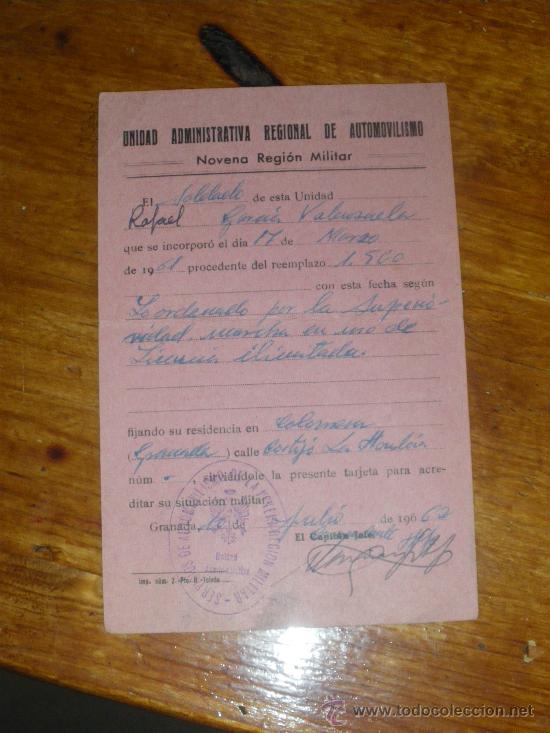 UNIDAD ADMINISTRATIVA REGIONAL DE AUTOMOVILISMO
Novena Región Militar
El Soldado de esta Unidad
Rafael García Valenzuela
que se incorporó el día 17 de Marzo
de 1961 procedente del reemplazo 1.960
con esta fecha según
Lo ordenado por la Superio-
ridad, marcha en uso de
Licencia ilimitada.
fijando su residencia en Colomera
(Granada) calle Cortijo La
núm. -, sirviéndole la presente tarjeta para acre-
ditar su situación militar.
Granada, de Julio de 196 62
El Capitán Jefe,
SERVICIO DE AUTOMOVILISMO DE LA NOVENA REGION MILITAR
Unidad
Administrativa
Imp. núm. 2.-Pto. H.-Toledo
www.todocoleccion.net